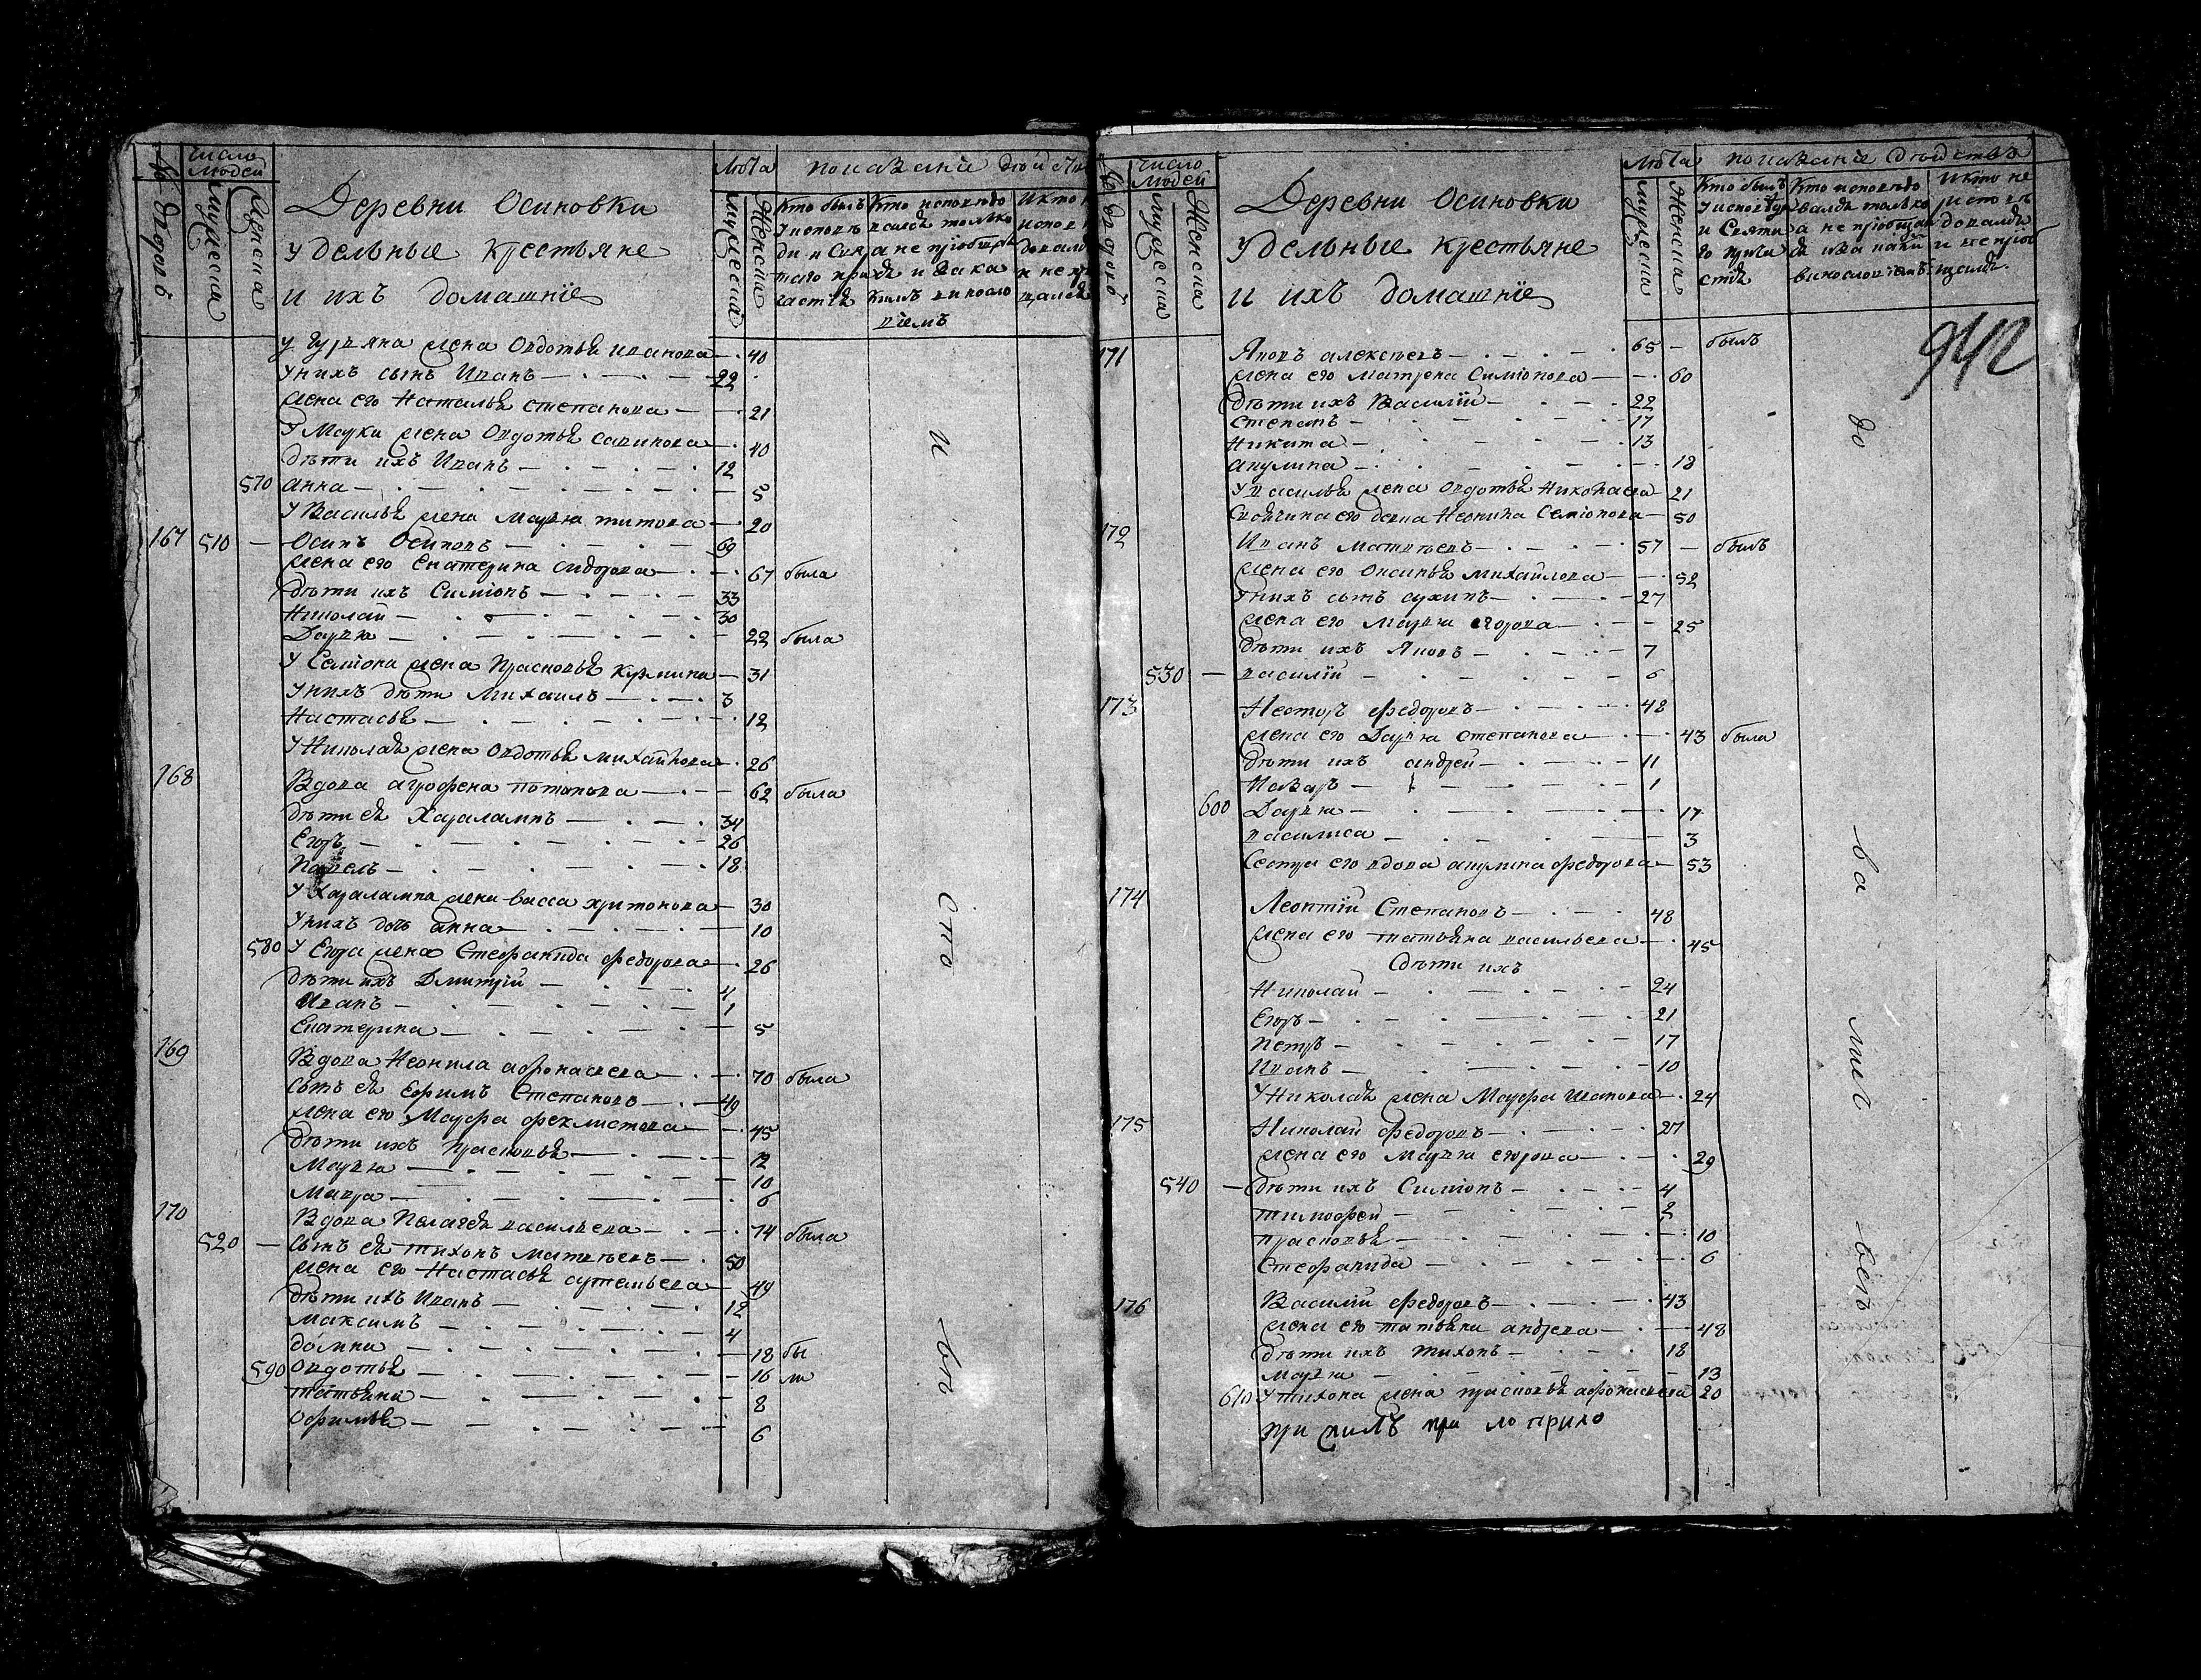 № дворовъ
число людей
мужеска
женска
Деревни Осиновки
удельные крестьяне
и ихъ домашніе
лѣта
мужеска
женска
показаніе дѣйств
Кто былъ
Кто исповѣдо
и кто
валсѧ только
а не пріобщ
виносло
віемъ
У Гурьяна жена Овдотья иванова — 40
У нихъ сынъ Иванъ — 22
жена его Наталья степанова — 21
У Марки жена Овдотья савинова — 40
дѣти ихъ Иванъ — 12
570 анна — 5
У Василья жена Марья титова — 20
167 510 — Осипъ Осиповъ — 69
жена его Екатерина сидорова — 67 была
дѣти ихъ Симіонъ — 33
Николай — 30
Дарья — 22 была
У Семіона жена Прасковья Кузмина — 31
У нихъ дѣти Михаилъ — 3
Настасья — 12
У Николая жена Овдотья михайлова — 26
168 Вдова агрофена потапова — 62 была
дѣти еѧ Харалампъ — 34
Егоръ — 26
Павелъ — 18
У Харалампа жена васса харитонова — 30
У нихъ дочь анна — 10
580 У Егора жена Стефанида федорова — 26
дѣти ихъ Дмитрій — 4
Иванъ — 1
Екатерина — 5
169 Вдова Неонила афонасьева — 70 была
сынъ еѧ Ефимъ Степановъ — 49
жена его Марфа феклистова — 45
дѣти ихъ Прасковья — 12
Марья — 10
Мавра — 6
170 Вдова Пелагея васильева — 74 была
520 — сынъ еѧ тихонъ матвѣевъ — 50
жена его Настасья артемьева — 49
дѣти ихъ Иванъ — 12
максимъ — 4
домна — 18 бы
590 Овдотья — 16 ли
татьяна — 8
Офимья — 6
№ дворовъ
число людей
мужеска
Женска
Деревни Осиновки
удельные крестьяне
и ихъ домашніе
лѣта
мужеска
Женска
показаніе дѣйствъ
Кто былъ
Кто исповѣдо
и кто не
валсѧ только
и Свята
а не пріобща
942
171 Яковъ алексѣевъ — 65 — былъ
жена его Матрена Симіонова — 60
дѣти ихъ Василій — 22
Степанъ — 17
Никита — 13
акулина — 18
У василья жена Овдотья Николаева — 21
172
Иванъ матвѣевъ — 57 — былъ
жена его Оксинья михайлова — 52
У нихъ сынъ архипъ — 27
жена его Марья егорова — 25
дѣти ихъ Яковъ — 7
530 — василій — 6
173 Несторъ федоровъ — 48
жена его Дарья степанова — 43 была
дѣти ихъ андрей — 11
Назаръ — 1
600 Дарья — 17
василиса — 3
Сестра его вдова акулина федорова — 53
174 Леонтій Степановъ — 48
жена его татьяна васильева — 45
дѣти ихъ
Николай — 24
Егоръ — 21
Петръ — 17
Иванъ — 10
У Николая жена Марфа Иванова — 24
175 Николай федоровъ — 27
жена его Марья егорова — 29
540 — дѣти ихъ Симіонъ — 4
тимофей — 2
прасковья — 10
Стефанида — 6
176 Василій федоровъ — 43
жена его татьяна андрева — 48
дѣти ихъ тихонъ — 18
марья — 13
610 У тихона жена прасковья афонасьева 20